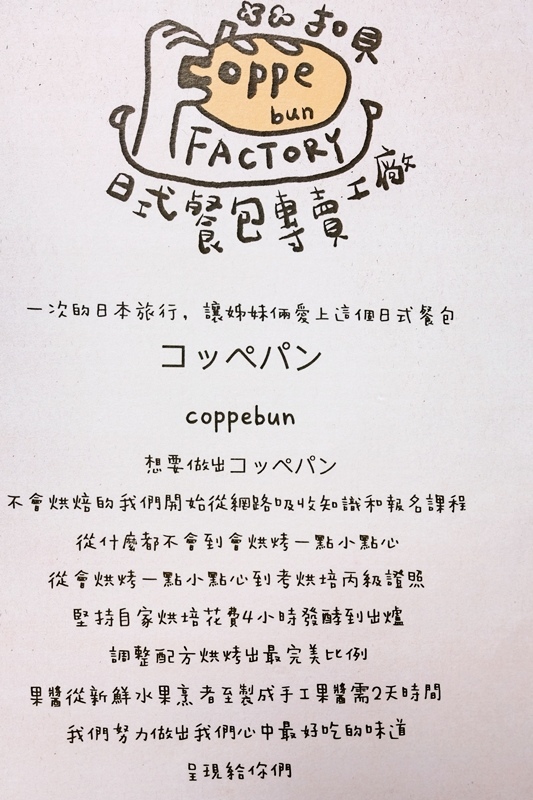 扣貝
coppe
bun
FACTORY
日式餐包專賣工廠
一次的日本旅行，讓姊妹倆愛上這個日式餐包
コッペパン
coppebun
想要做出コッペパン
不會烘焙的我們開始從網路吸收知識和報名課程
從什麼都不會到會烘烤一點小點心
從會烘烤一點小點心到考烘培丙級證照
堅持自家烘培花費4小時發酵到出爐
調整配方烘烤出最完美比例
果醬從新鮮水果烹煮至製成手工果醬需2天時間
我們努力做出我們心中最好吃的味道
呈現給你們